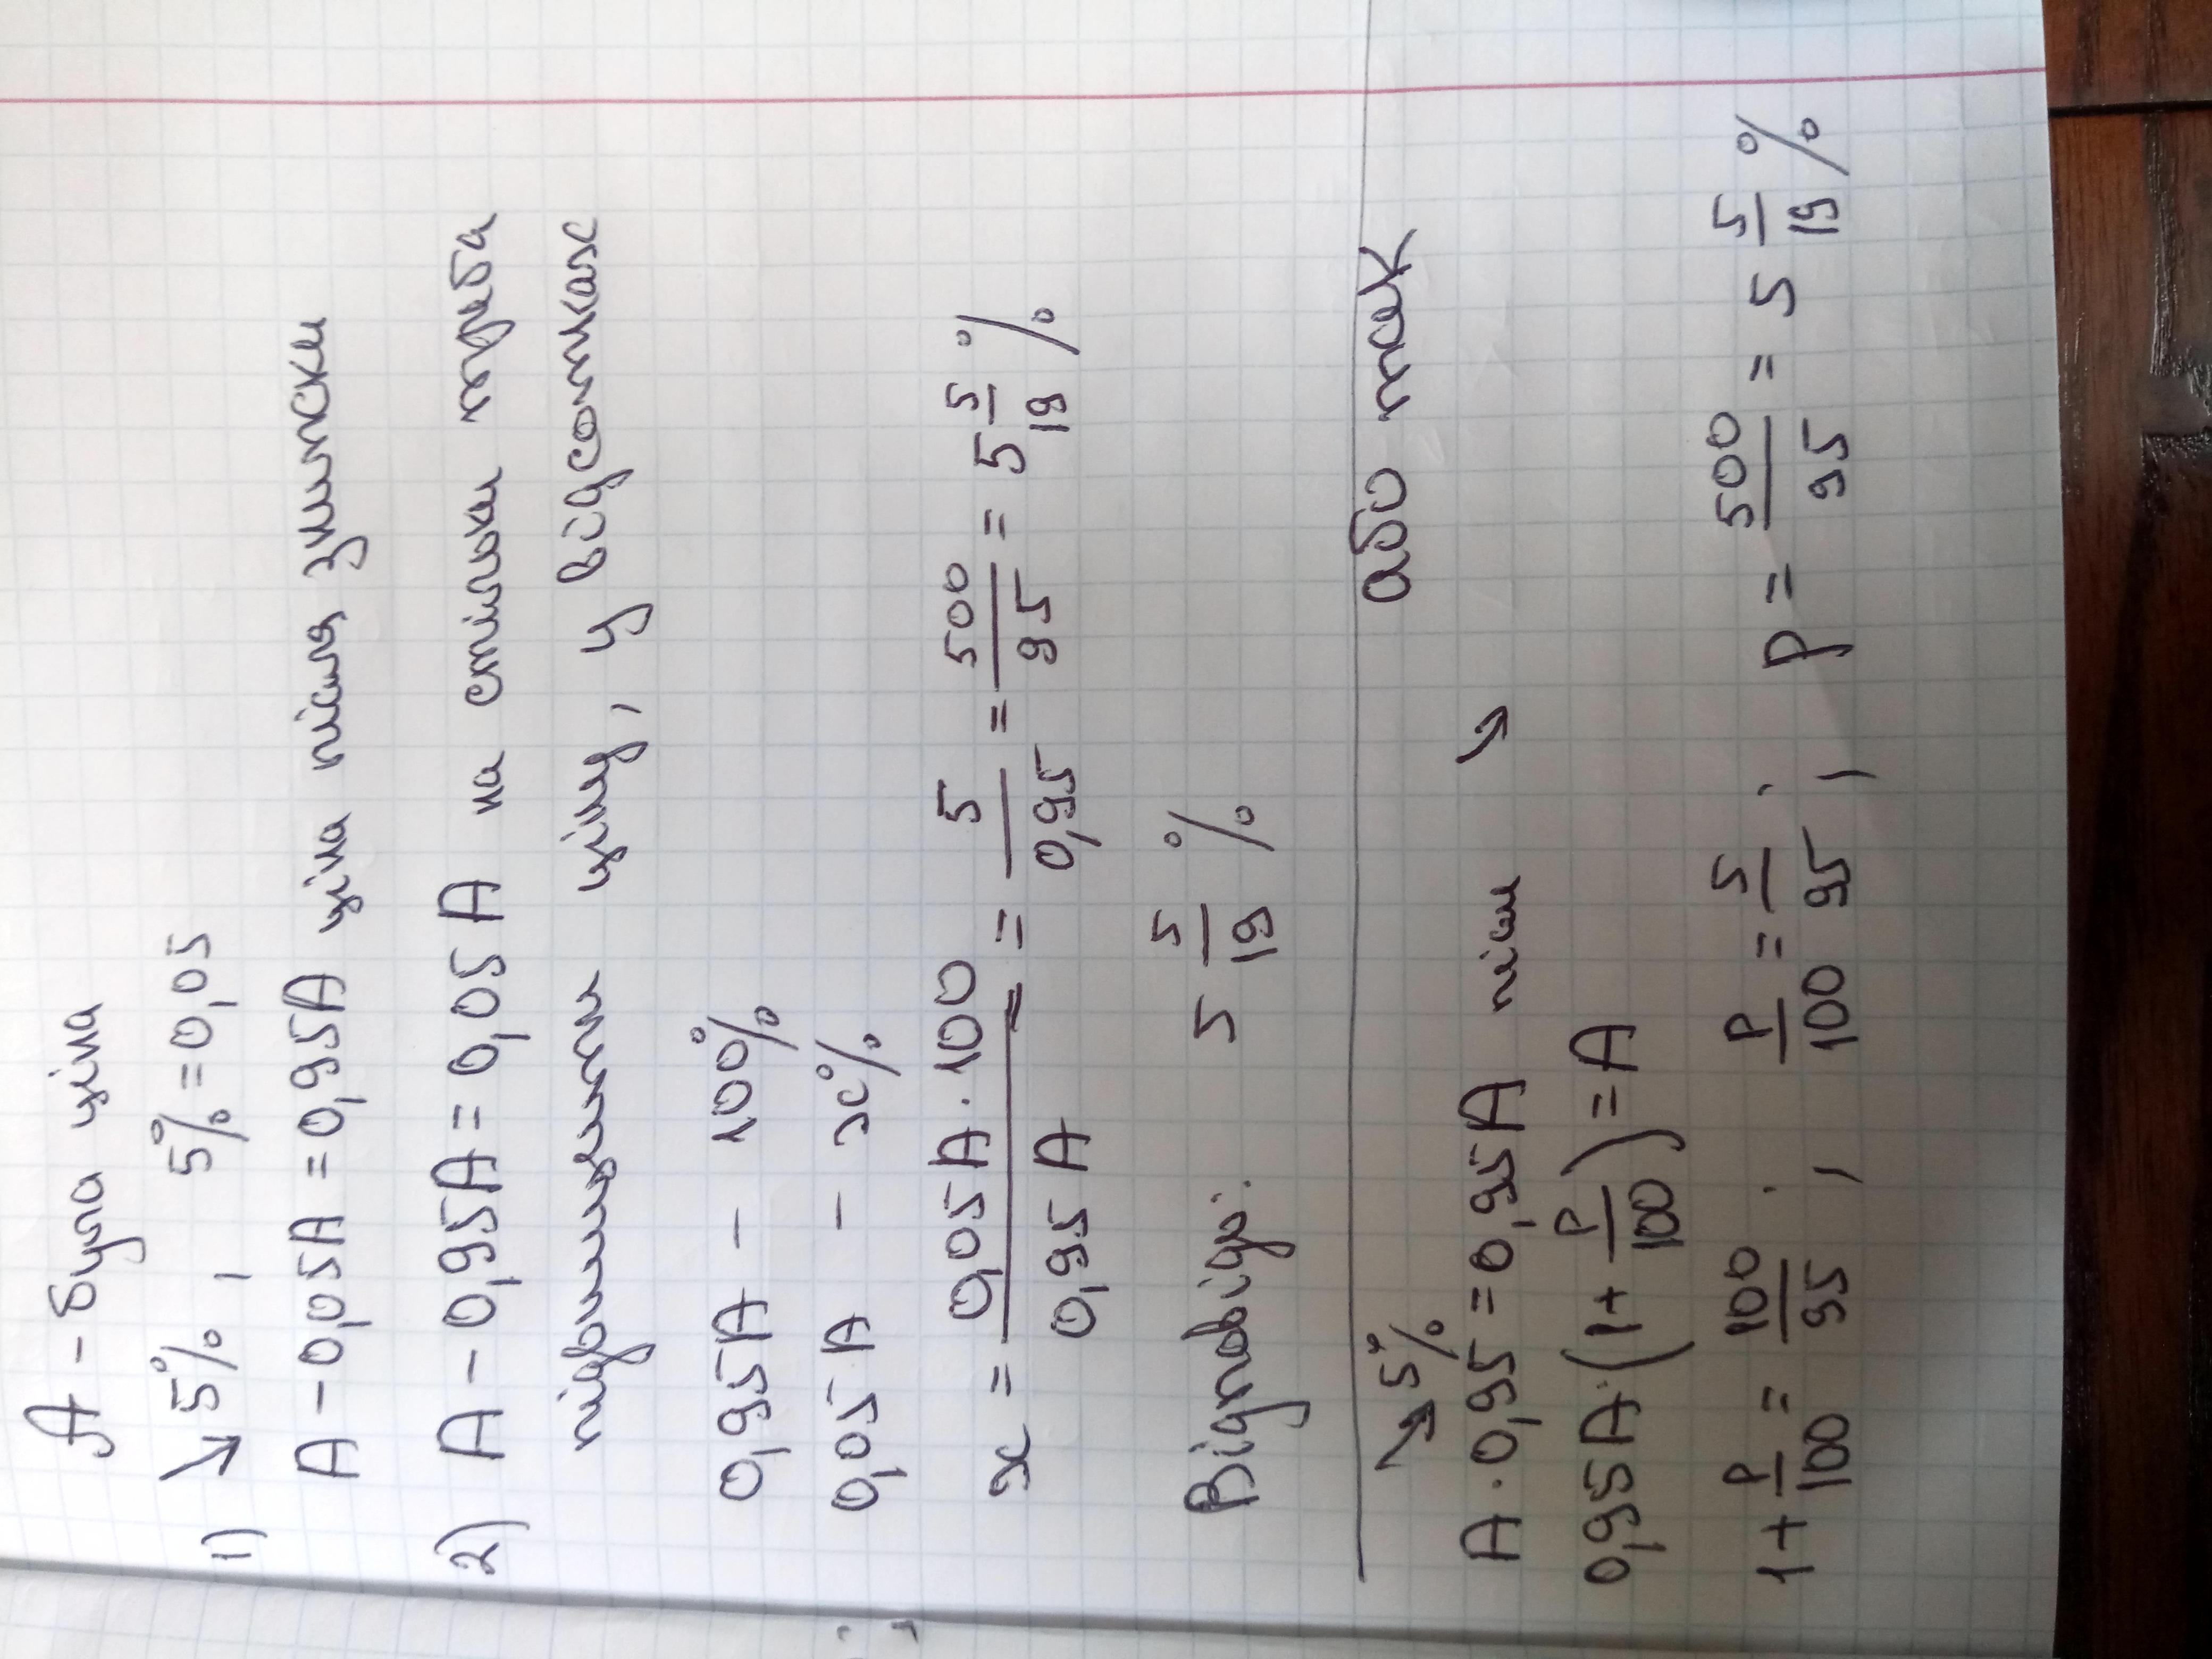 А – була ціна
1) ↘ 5% , 5% = 0,05
А – 0,05А = 0,95А ціна після знижски
2) А – 0,95А = 0,05 А на стільки треба
підвищити ціну, у відсотках
0,95А – 100%
0,05 А – х%
x = \frac{0,05 А · 100}{0,95 А} = = \frac{5}{0,95} = \frac{500}{95} = 5 \frac{5}{19} %
Відповідь: 5 \frac{5}{19} %
або так
↘ 5%
А · 0,95 = 0,95А після ↘
0,95А · (1 + \frac{p}{100}) = А
1 + \frac{p}{100} = \frac{100}{95} ; \frac{p}{100} = \frac{5}{95} ; p = \frac{500}{95} = 5 \frac{5}{19} %